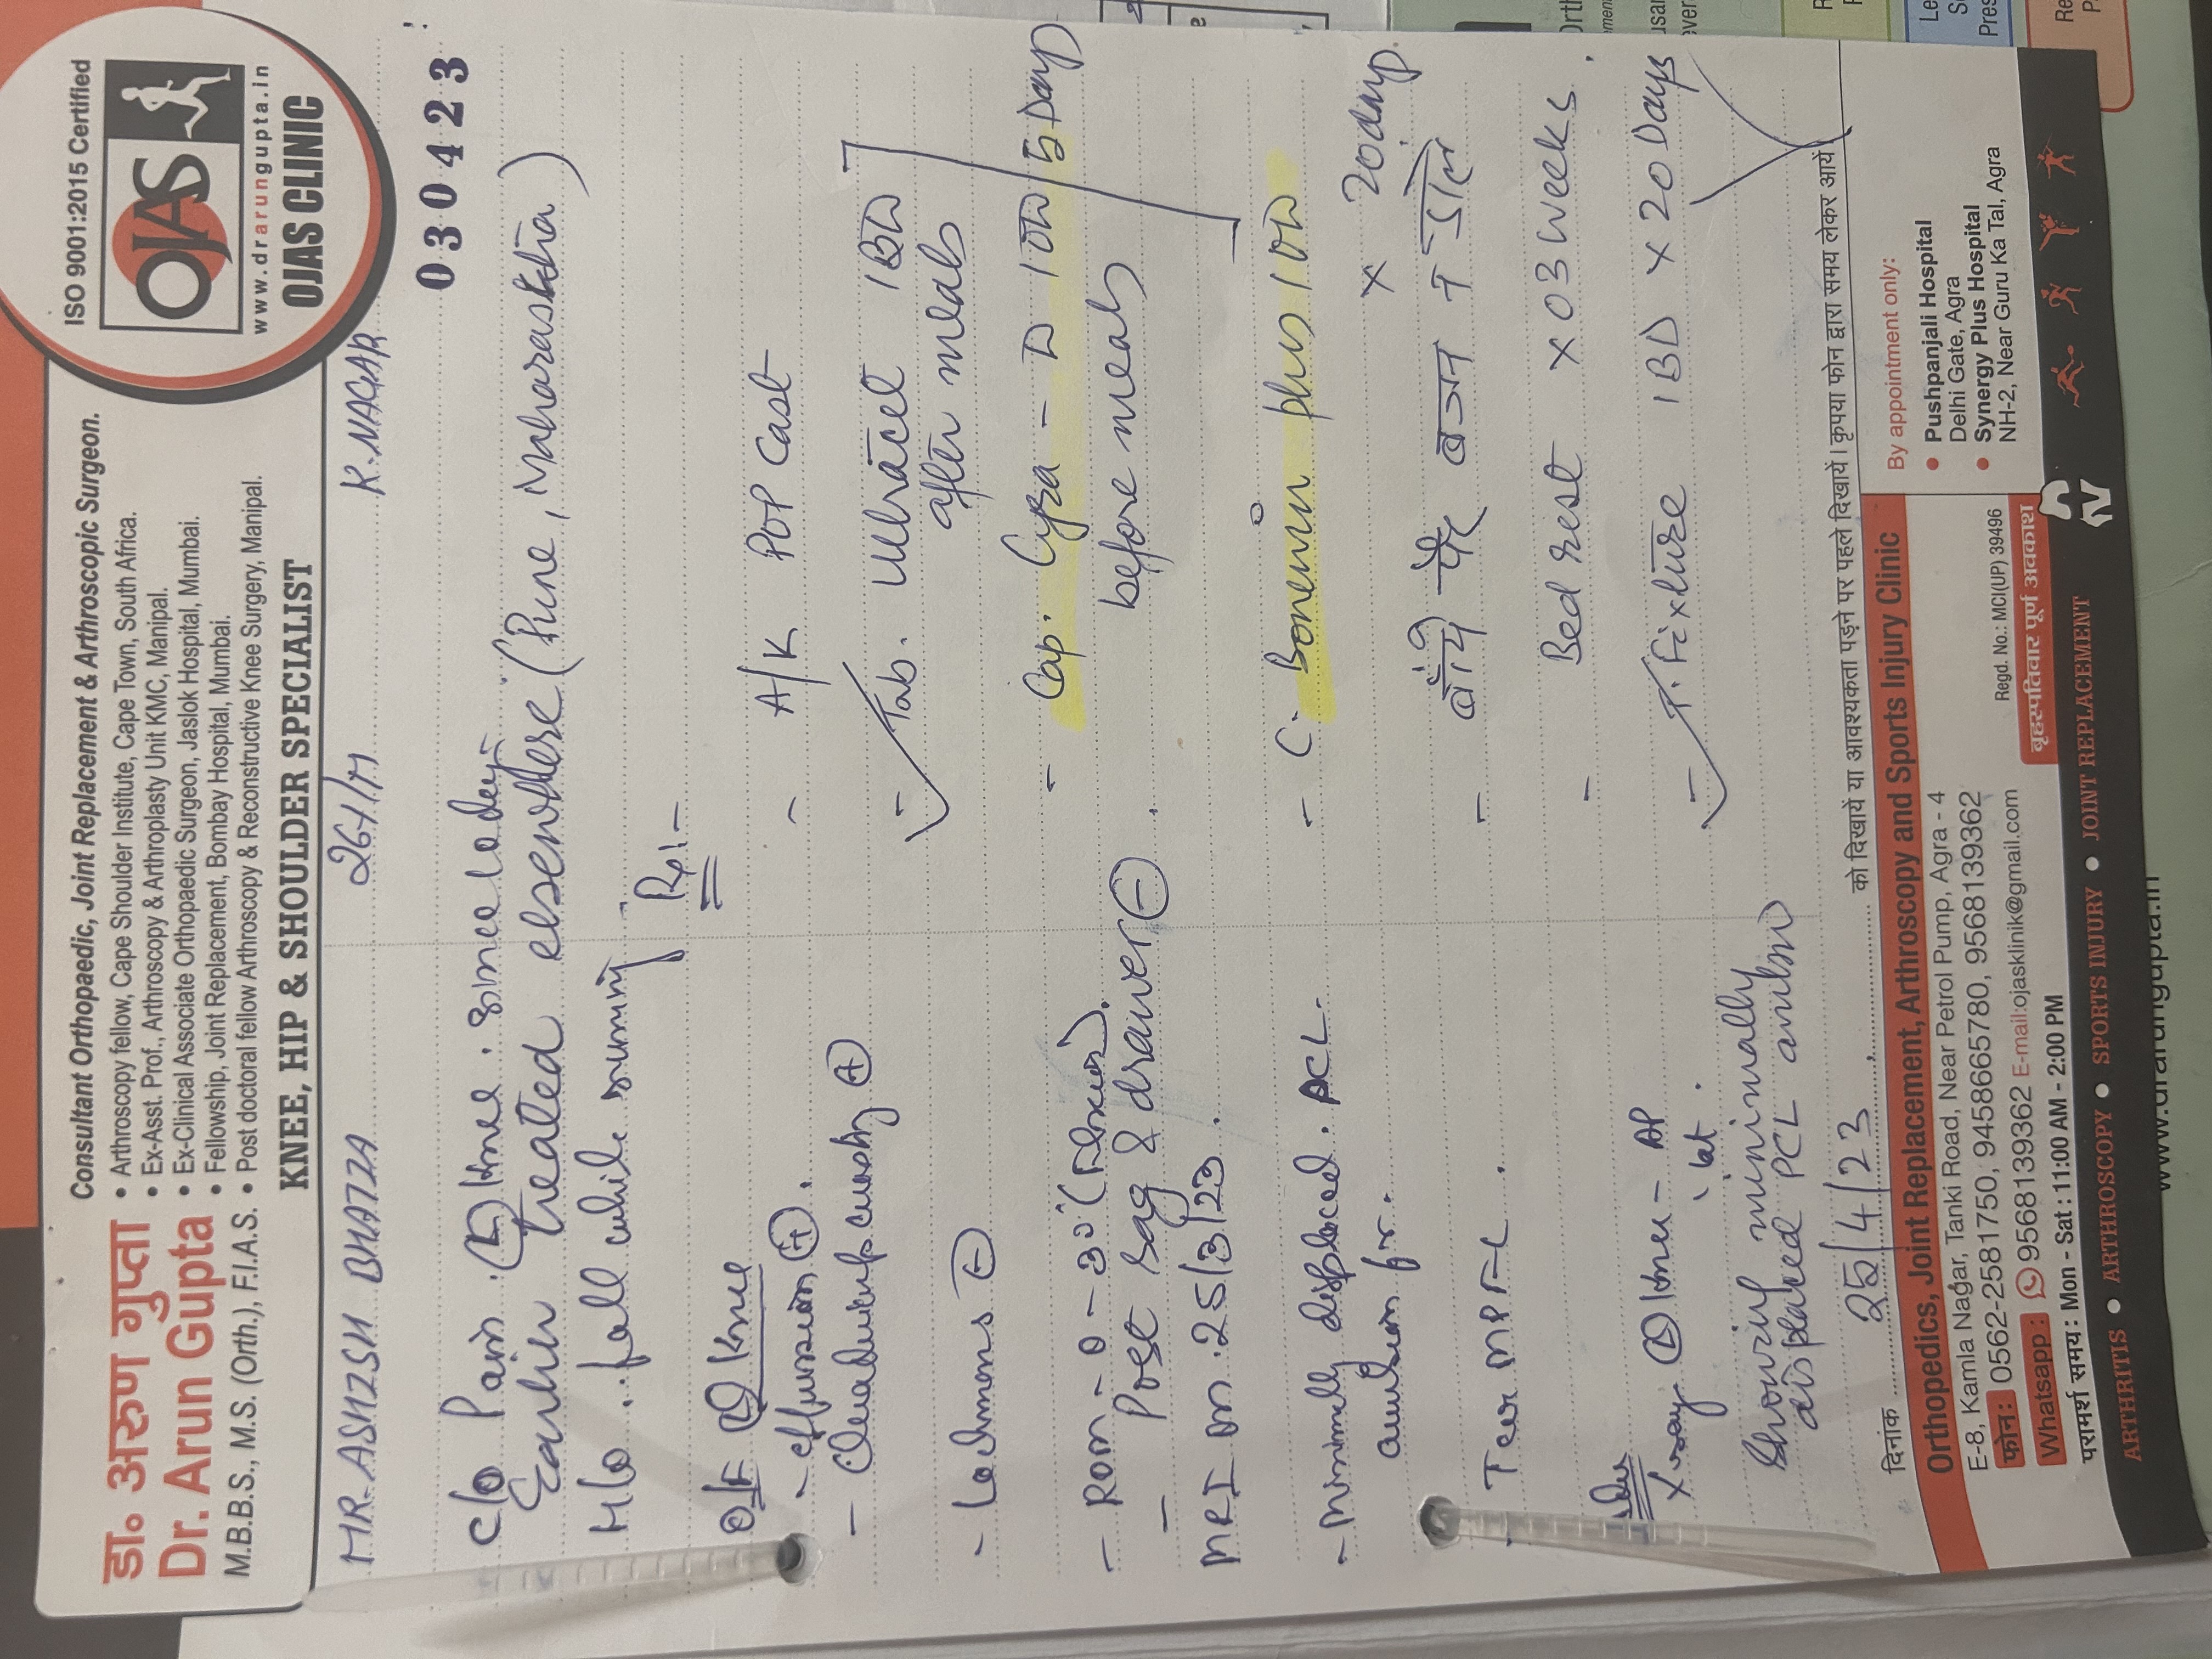 Consultant Orthopaedic, Joint Replacement & Arthroscopic Surgeon.
डा॰ अरुण गुप्ता
Dr. Arun Gupta
M.B.B.S., M.S. (Orth.), F.I.A.S.
• Arthroscopy fellow, Cape Shoulder Institute, Cape Town, South Africa.
• Ex-Asst. Prof., Arthroscopy & Arthroplasty Unit KMC, Manipal.
• Ex-Clinical Associate Orthopaedic Surgeon, Jaslok Hospital, Mumbai.
• Fellowship, Joint Replacement, Bombay Hospital, Mumbai.
• Post doctoral fellow Arthroscopy & Reconstructive Knee Surgery, Manipal.
KNEE, HIP & SHOULDER SPECIALIST
ISO 9001:2015 Certified
OJAS
www.drarungupta.in
OJAS CLINIC
MR. ASHISH BHATIA 26Y/M K. NAGAR
030423
C/O Pain (L) Knee since 10 days
Earlier treated elsewhere (Pune, Maharashtra)
H/O fall while running
Rx:-
O/E (L) Knee
- effusion (+).
- Quadriceps wasting (+)
- Lachmans (-)
- ROM - 0 - 30° (Flexion).
- Post sag & drawer (-).
MRI on 25/3/23.
- Minimally displaced PCL
avulsion fr.
- Tear MPFL.
Xray (L) Knee - AP
lat.
Showing minimally
displaced PCL avulsion
- A/K POP Cast
- Tab. Ultracet 1BD
after meals
- Cap. Cyra - D 1OD
before meals
5 Days
- C. Bonewin plus 1OD
x 20 days.
- बाँये पैर वजन न डाले
- Bed rest x 03 Weeks.
- T. Fixture 1BD x 20 Days
दिनांक 25/4/23 को दिखायें या आवश्यकता पड़ने पर पहले दिखायें। कृपया फोन द्वारा समय लेकर आयें
Orthopedics, Joint Replacement, Arthroscopy and Sports Injury Clinic
E-8, Kamla Nagar, Tanki Road, Near Petrol Pump, Agra - 4
फोन: 0562-2581750, 9458665780, 9568139362
Whatsapp: 9568139362 E-mail:ojasklinik@gmail.com
परामर्श समय: Mon - Sat : 11:00 AM - 2:00 PM
Regd. No.: MCI(UP) 39496
बृहस्पतिवार पूर्ण अवकाश
By appointment only:
• Pushpanjali Hospital
Delhi Gate, Agra
• Synergy Plus Hospital
NH-2, Near Guru Ka Tal, Agra
ARTHRITIS • ARTHROSCOPY • SPORTS INJURY • JOINT REPLACEMENT
www.drarungupta.in